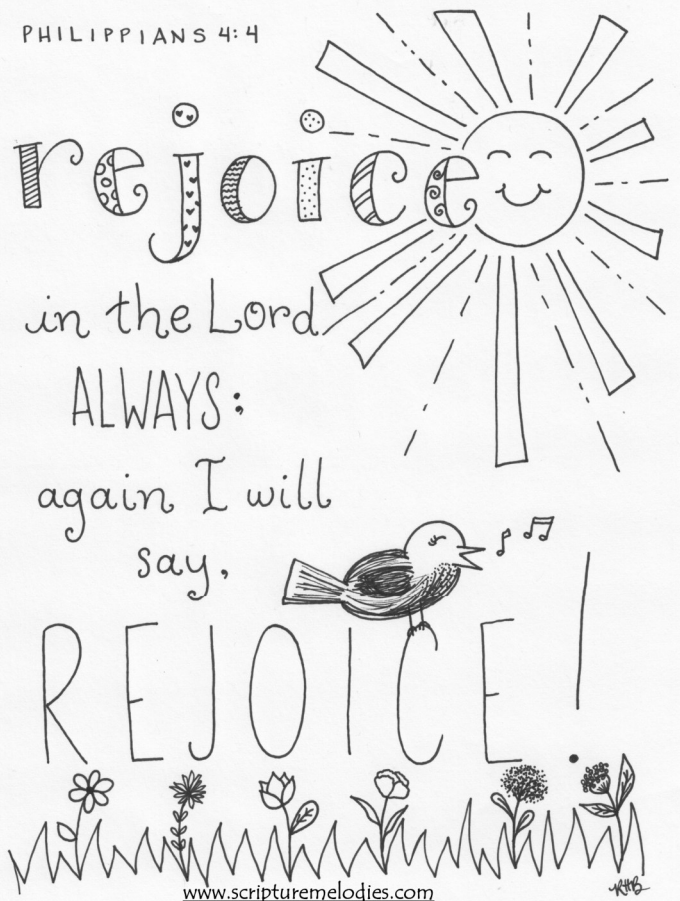 PHILIPPIANS 4:4
rejoice
in the Lord
ALWAYS;
again I will
say,
REJOICE!
www.scripturemelodies.com